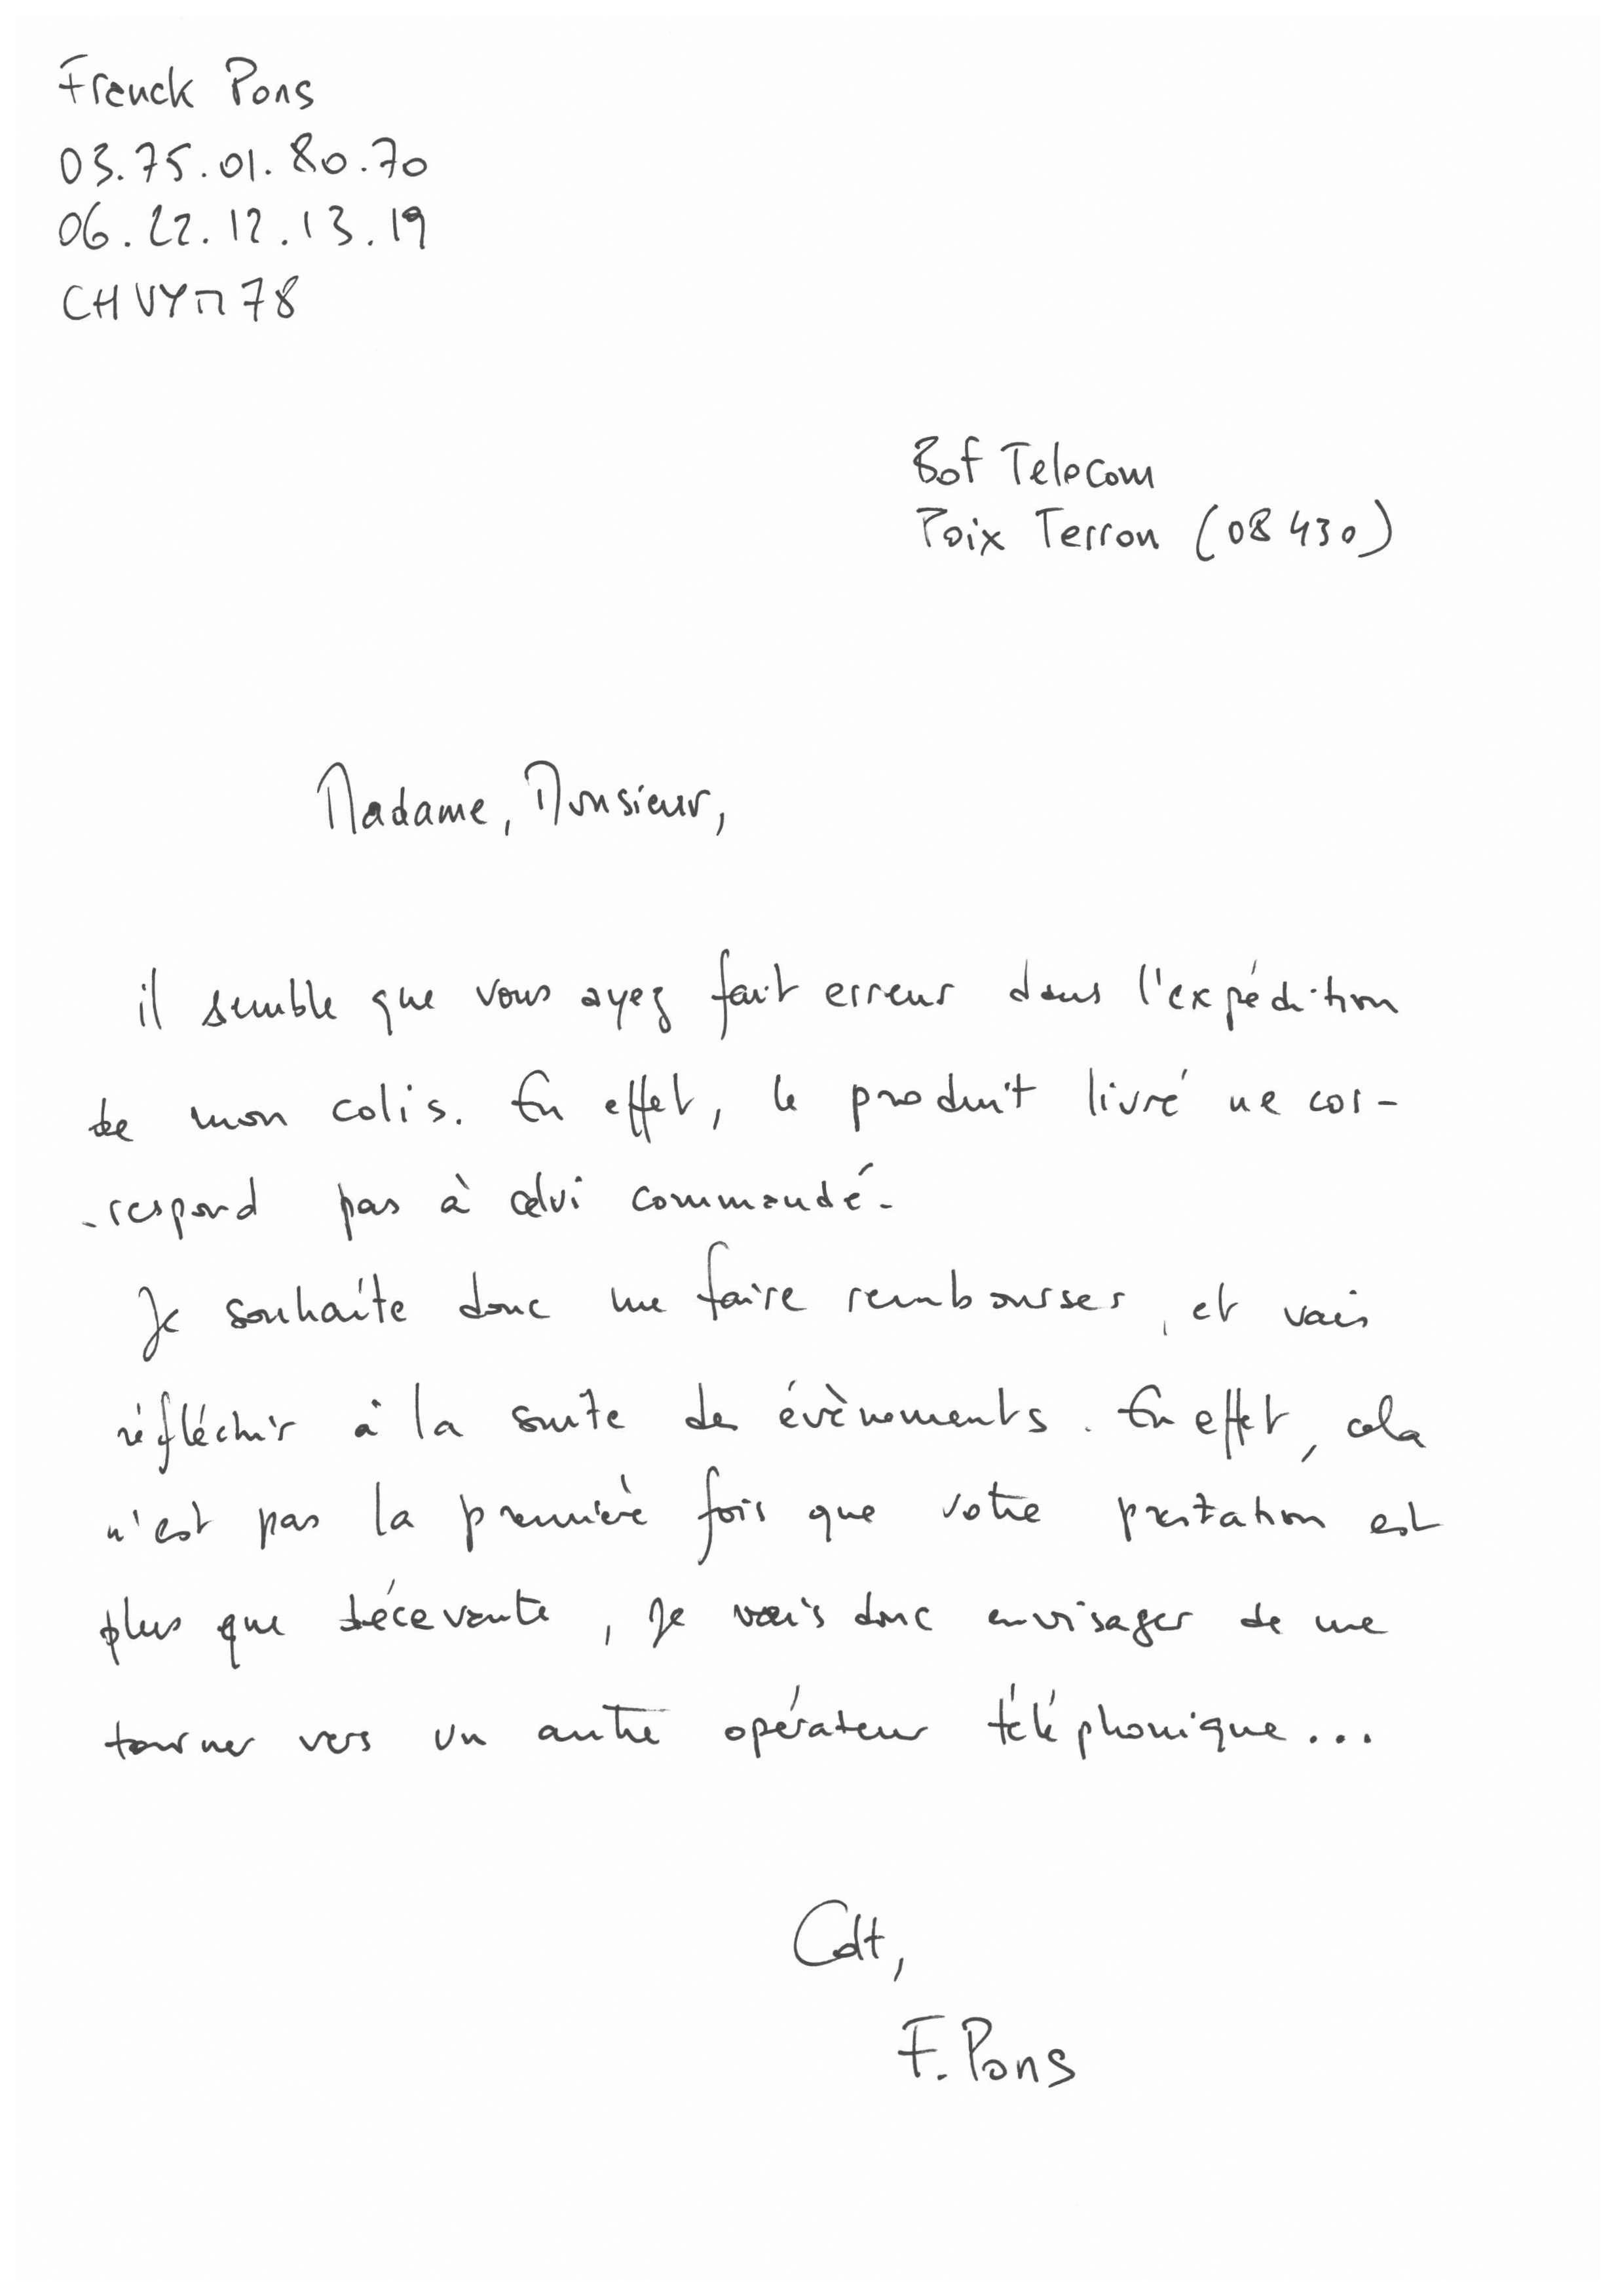 Franck Pons
03.75.01.80.70
06.22.12.13.19
CHVYM78
Bof Telecom
Poix Terron (08430)
Madame, Monsieur,
il semble que vous ayez fait erreur dans l'expédition
de mon colis. En effet, le produit livré ne cor-
-respond pas à celui commandé.
Je souhaite donc me faire rembourser, et vais
réfléchir à la suite des évènements. En effet, cela
n'est pas la première fois que votre prestation est
plus que décevante, je vais donc envisager de me
tourner vers un autre opérateur téléphonique...
Cdt,
F. Pons